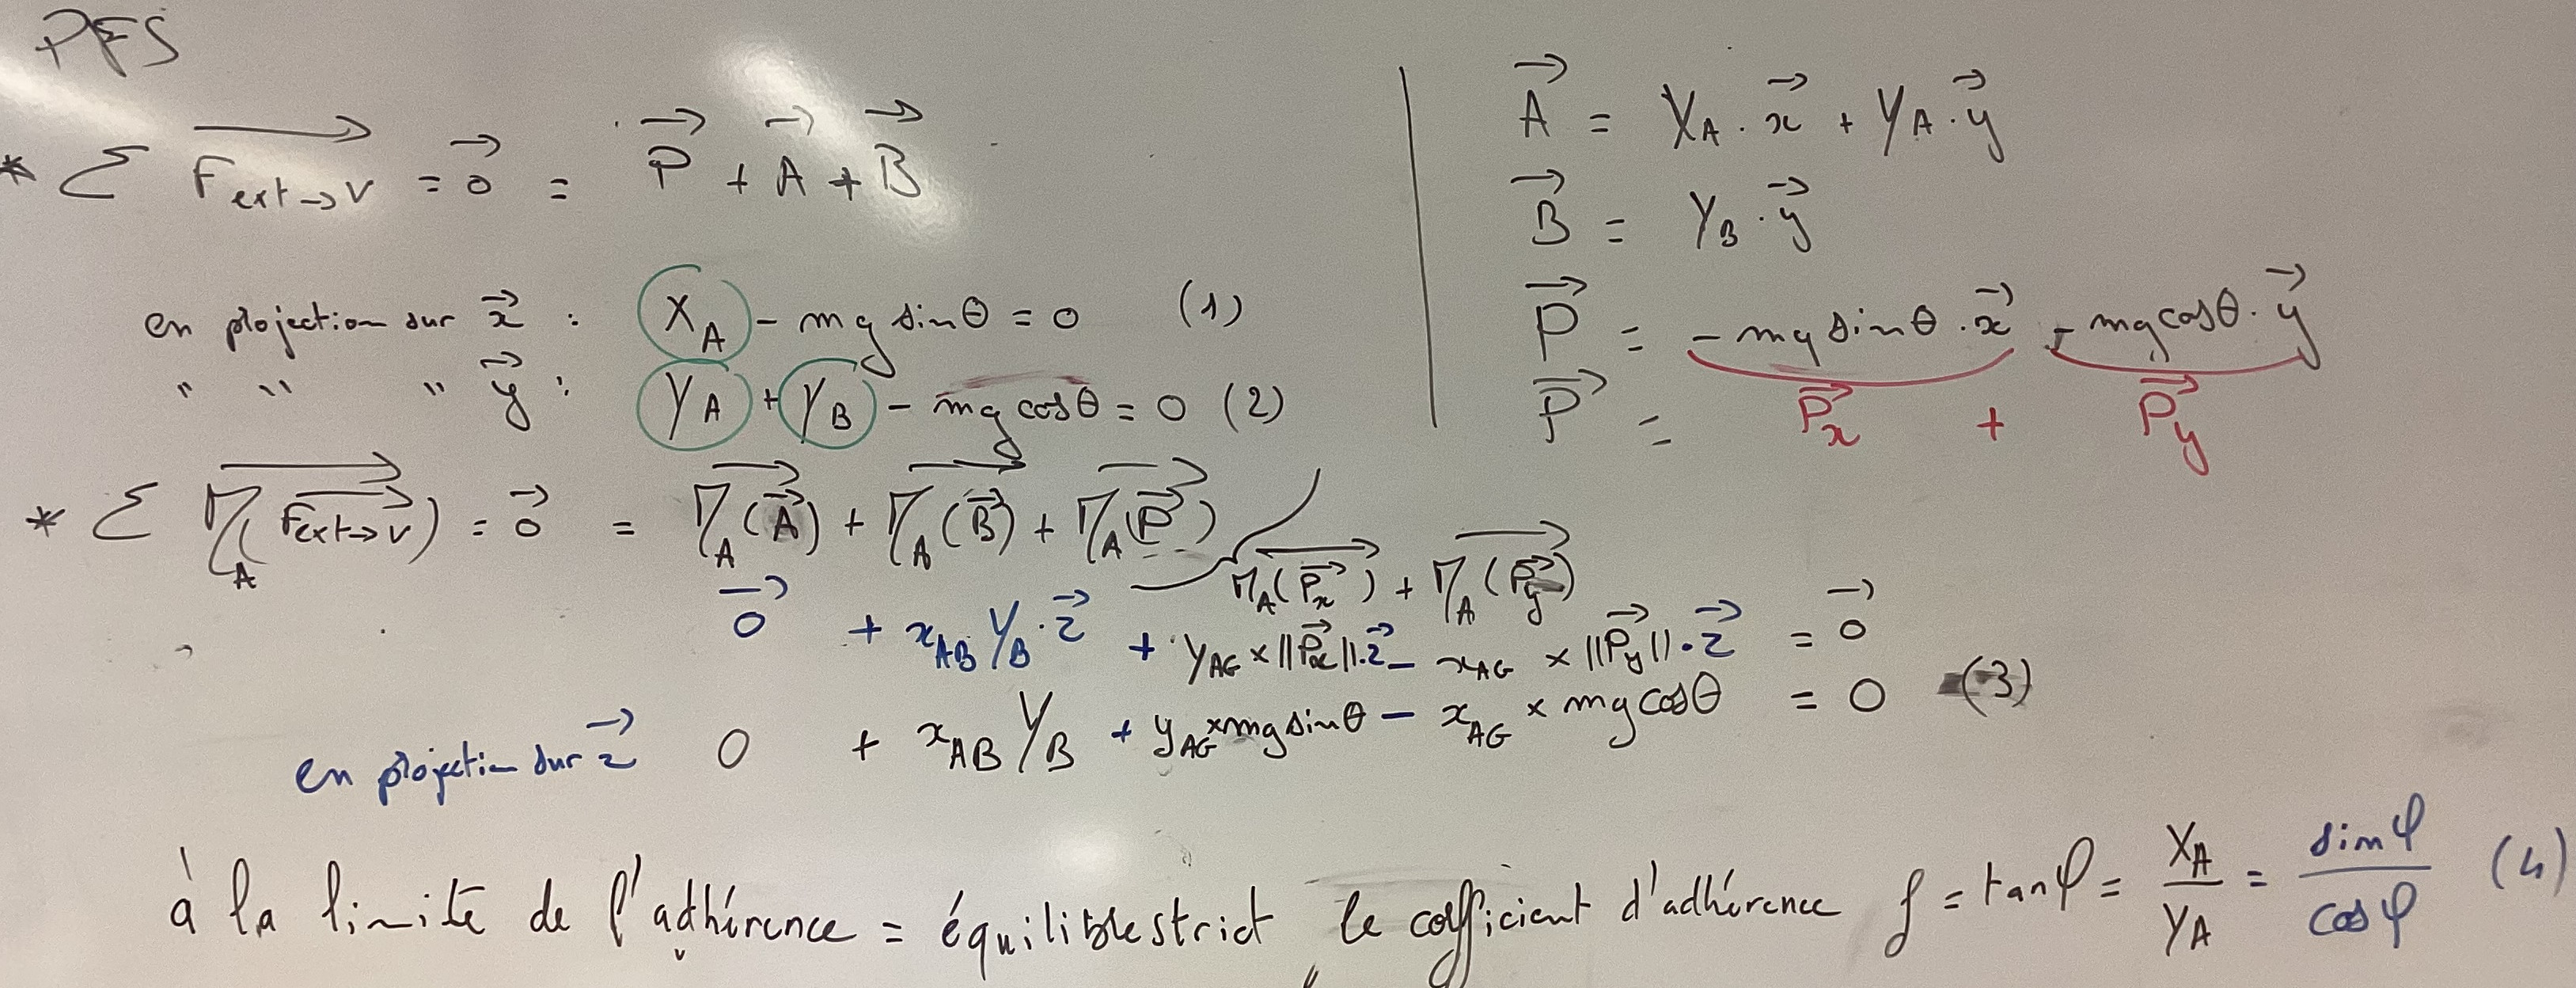 PFS
* Σ F⃗ext→v = 0⃗ = P⃗ + A⃗ + B⃗
en projection sur x⃗ : X_A - mg sinθ = 0 (1)
" " " y⃗ : Y_A + Y_B - mg cosθ = 0 (2)
A⃗ = X_A . x⃗ + Y_A . y⃗
B⃗ = Y_B . y⃗
P⃗ = - mg sinθ . x⃗ - mg cosθ . y⃗
P⃗ = P⃗x + P⃗y
* Σ M⃗_A(F⃗ext→v) = 0⃗ = M⃗_A(A⃗) + M⃗_A(B⃗) + M⃗_A(P⃗)
M⃗_A(P⃗x) + M⃗_A(P⃗y)
0⃗ + x_AB Y_B . z⃗ + y_AG × ||P⃗x|| . z⃗ - x_AG × ||P⃗y|| . z⃗ = 0⃗
en projection sur z⃗ 0 + x_AB Y_B + y_AG × mg sinθ - x_AG × mg cosθ = 0 (3)
à la limite de l'adhérence = équilibre strict, le coefficient d'adhérence f = tanφ = X_A / Y_A = sinφ / cosφ (4)